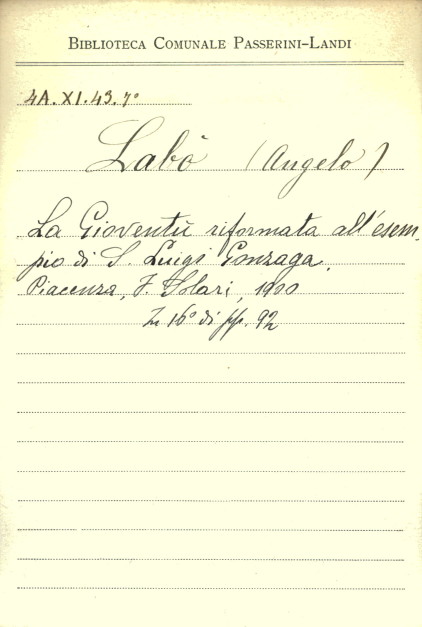 BIBLIOTECA COMUNALE PASSERINI-LANDI
4A.XI.43.7º
Labò (Angelo)
La Gioventù riformata all'esem-
pio di S. Luigi Gonzaga.
Piacenza, F. Solari, 1900
In 16º di pp. 92